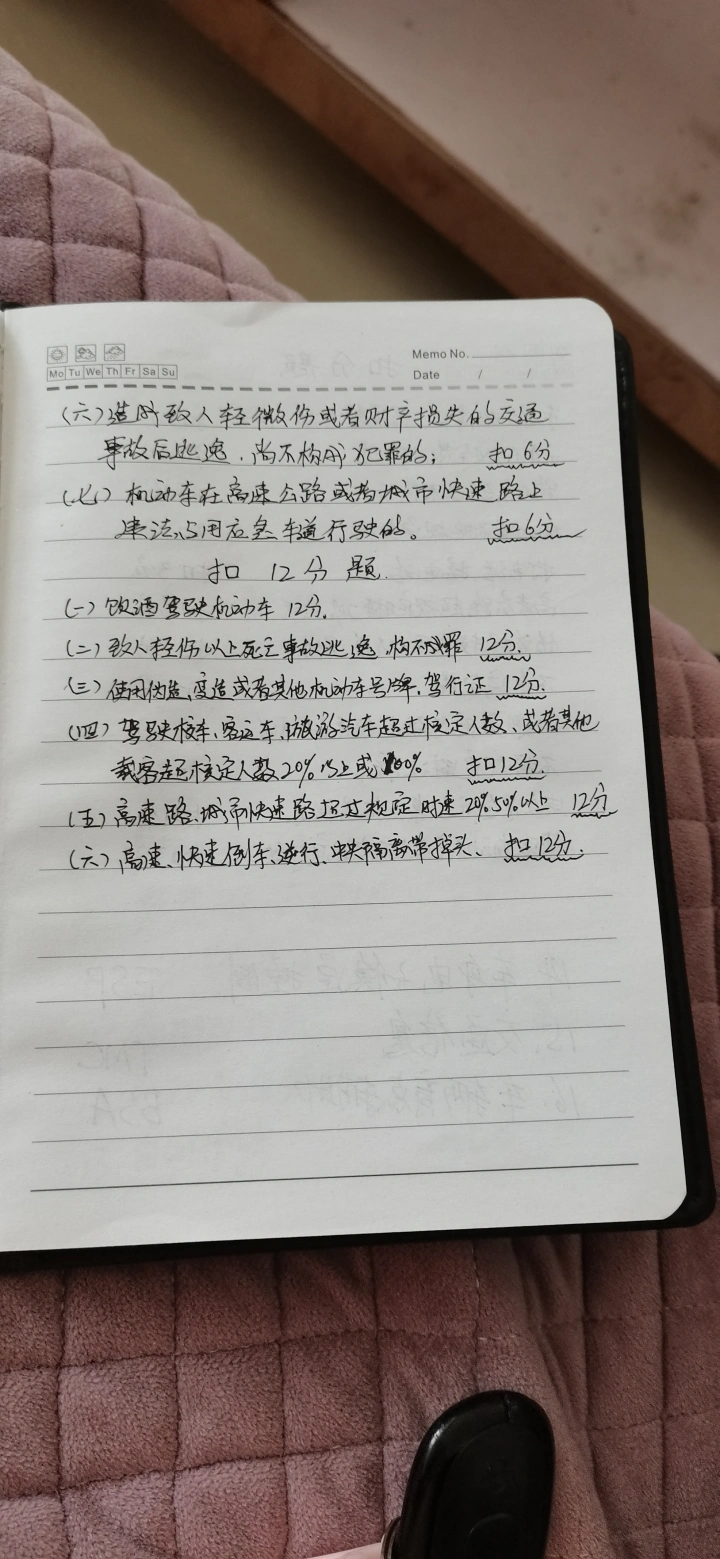 Memo No.
Mo Tu We Th Fr Sa Su
Date / /
(六)造成致人轻微伤或者财产损失的交通
事故后逃逸,尚不构成犯罪的; 扣6分
(七)机动车在高速公路或者城市快速路上
违法占用应急车道行驶的。 扣6分
扣 12分 题.
(一)饮酒驾驶机动车 12分.
(二)致人轻伤以上死亡事故逃逸,构不成罪 12分.
(三)使用伪造、变造或者其他机动车号牌,驾行证 12分.
(四)驾驶校车、客运车、旅游汽车超过核定人数、或者其他
载客超核定人数20%以上或100% 扣12分.
(五)高速路、城市快速路超过规定时速20%50%以上 12分
(六)高速、快速倒车、逆行、中央隔离带掉头、 扣12分.